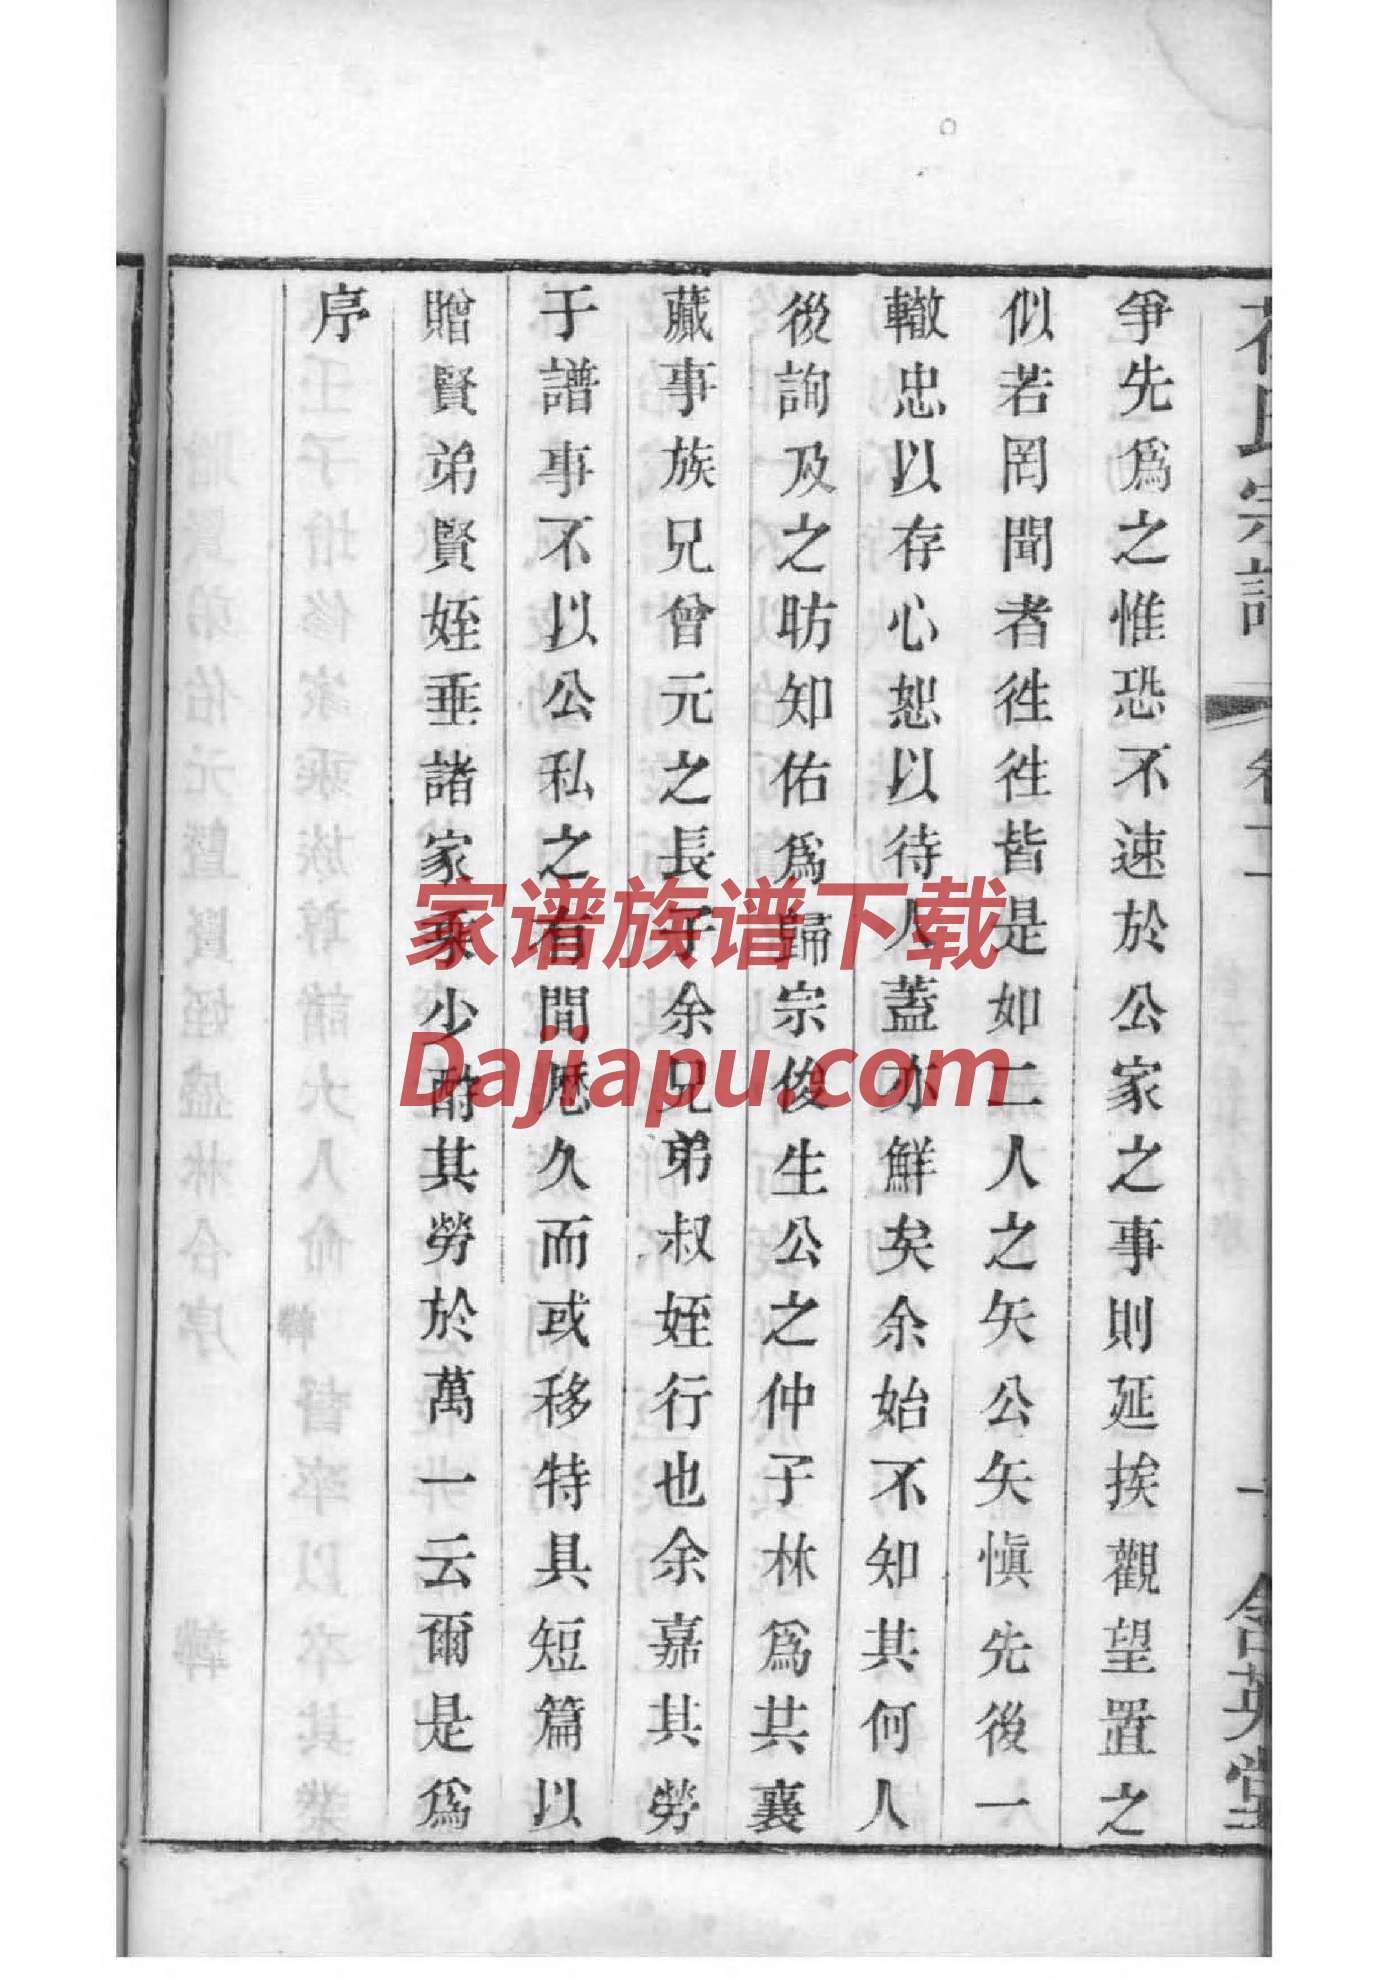 氏宗譜
卷二
含英堂
爭先爲之惟恐不速於公家之事則延挨觀望置之
似若罔聞者徃徃皆是如二人之矢公矢愼先後一
轍忠以存心恕以待人蓋亦鮮矣余始不知其何人
後詢及之昉知佑爲歸宗俊生公之仲子林爲共襄
蕆事族兄曾元之長子余兄弟叔姪行也余嘉其勞
于譜事不以公私之有間歷久而或移特具短篇以
贈賢弟賢姪垂諸家乘少酧其勞於萬一云爾是爲
序
家谱族谱下载
Dajiapu.com